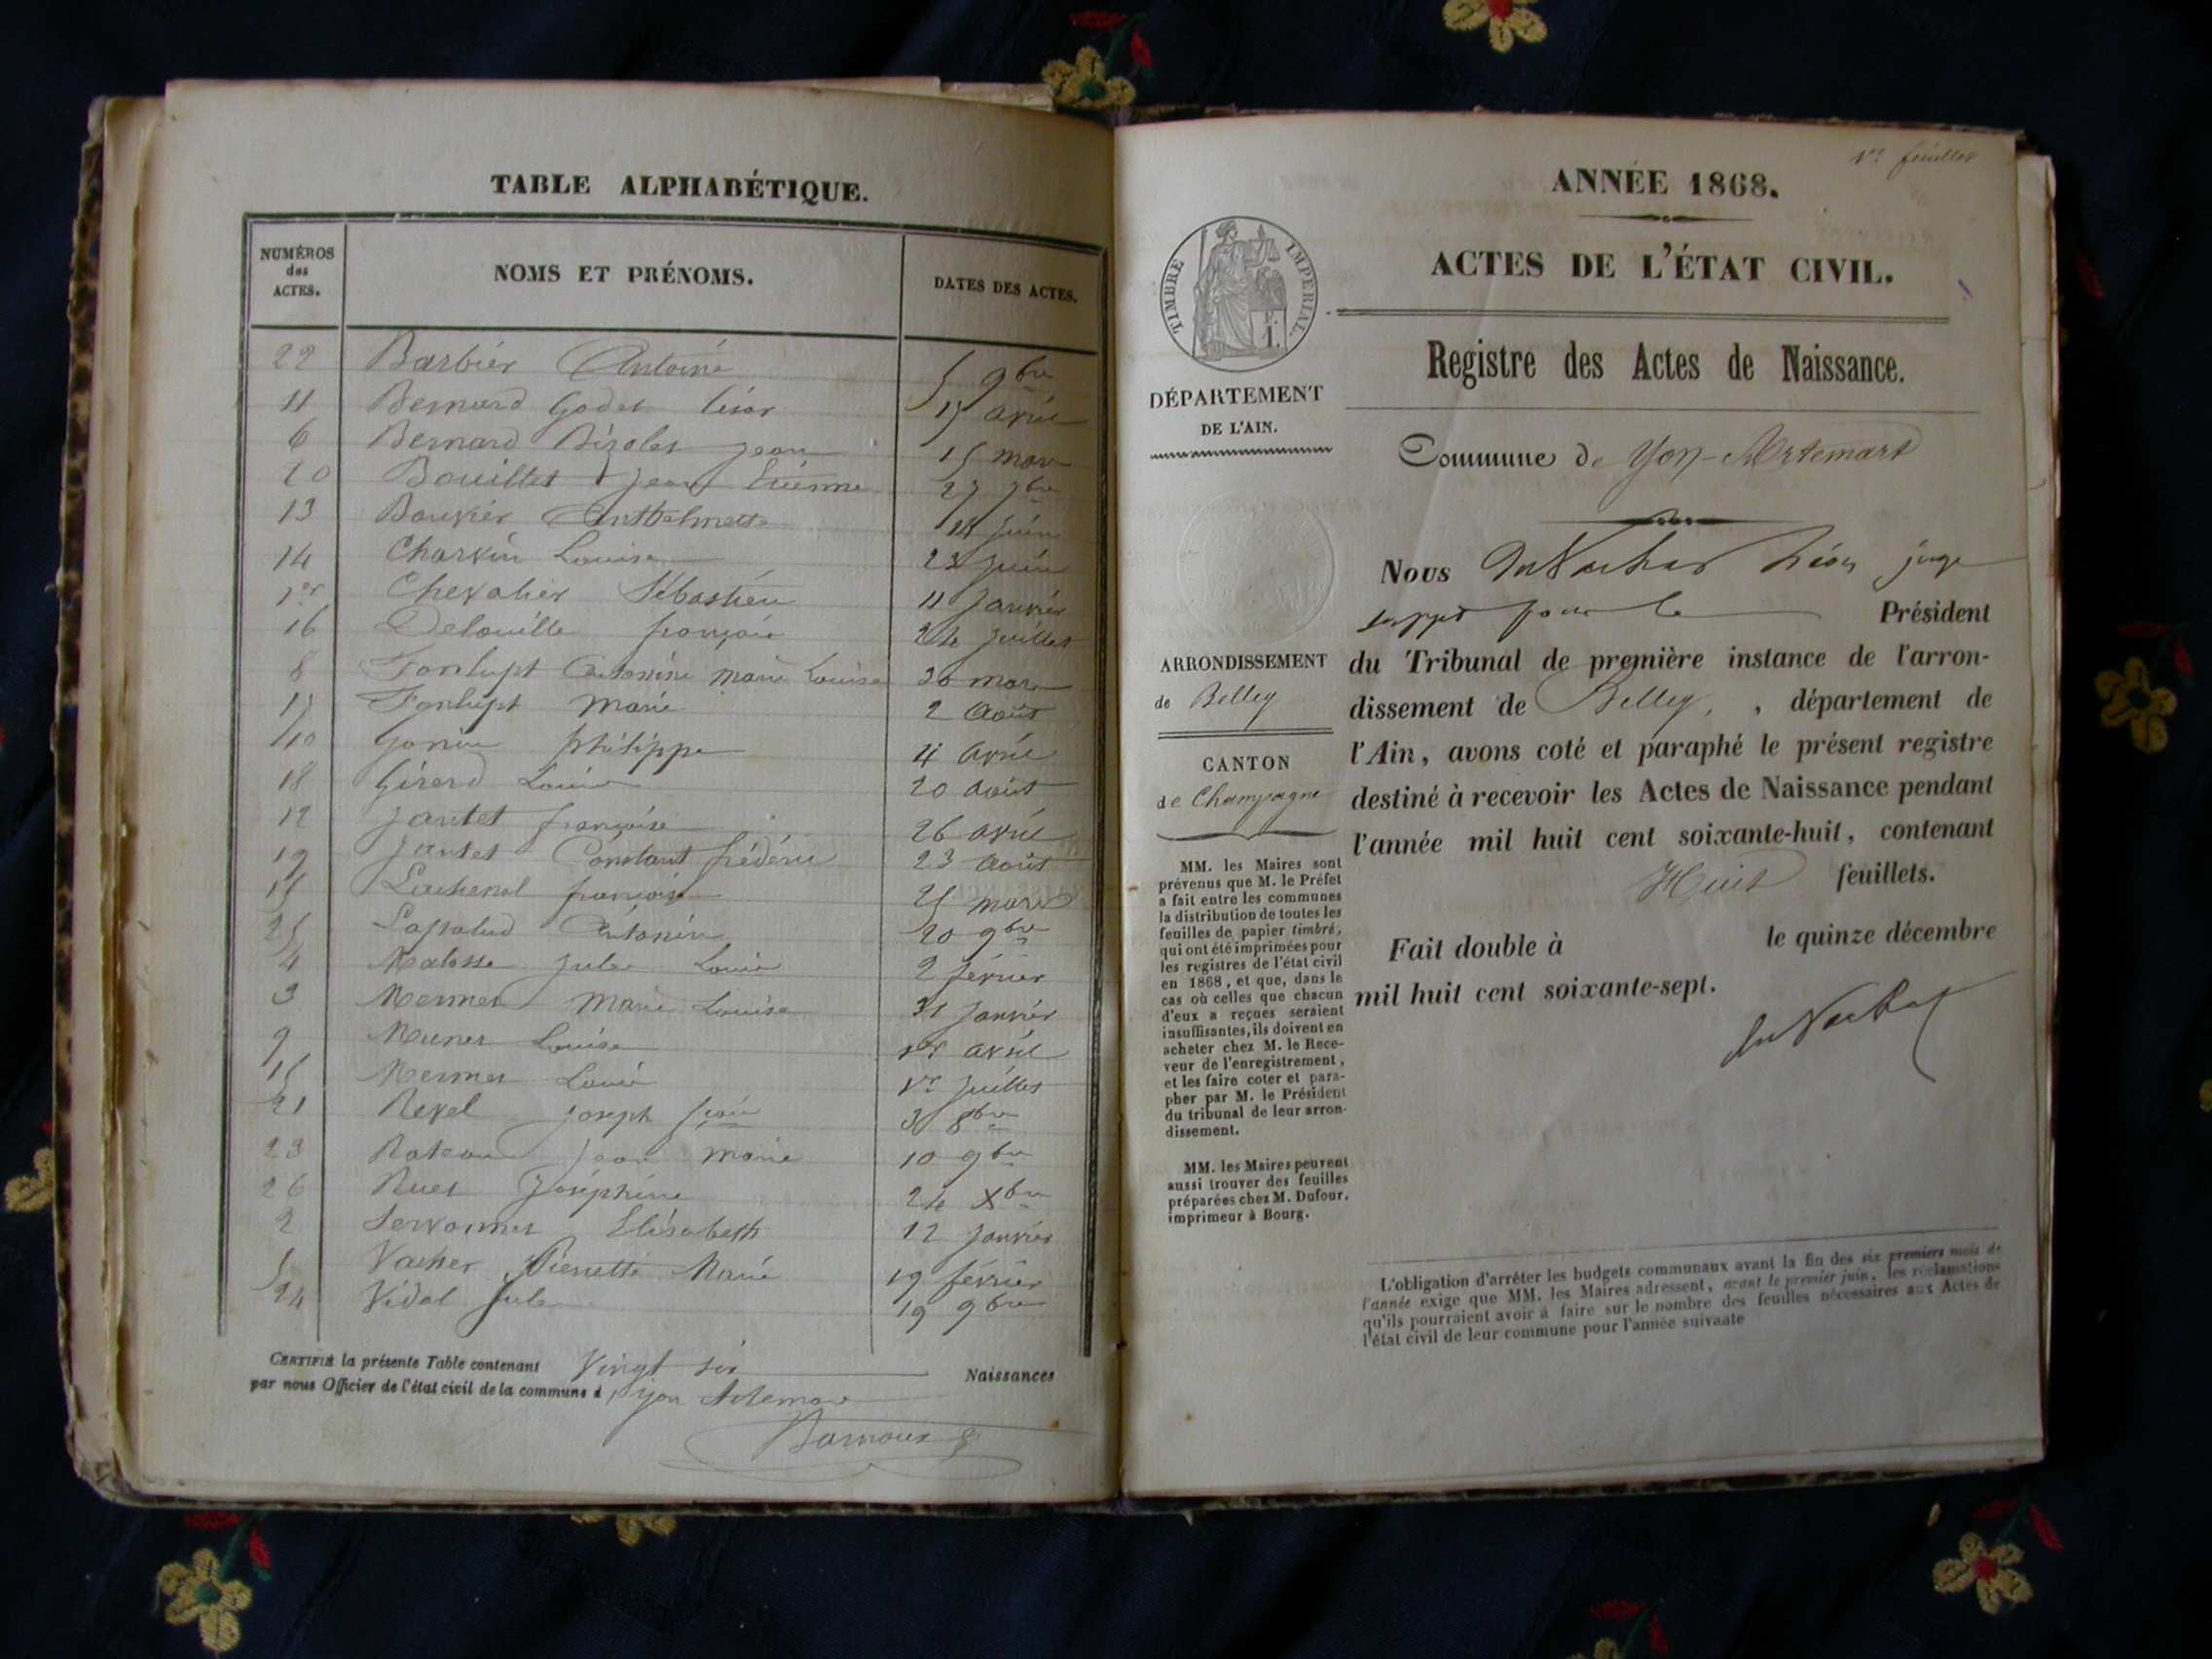 TABLE ALPHABÉTIQUE.
NUMÉROS des ACTES.
NOMS ET PRÉNOMS.
DATES DES ACTES.
22 Barbier Antoine 5 9bre
11 Bernard Godet César 15 avril
6 Bernard jean 15 mars
20 Bouillet jean Etienne 27 7bre
13 Bouvier Anthelmette 14 juin
14 Charvin Louise 23 juin
1er Chevalier Sébastien 11 janvier
16 françois 24 juillet
8 Fonlupt Antonine marie Louise 30 mars
17 Fonlupt Marie 2 août
10 philippe 4 avril
18 Girerd Louis 20 août
12 Jantet françoise 26 avril
19 Jantet Constant frédéric 23 août
Lachenal 25 mars
25 Lapalud Antonin 20 9bre
4 Jules Louis 2 février
3 Mermet Marie Louise 31 janvier
9 Louise 1er avril
15 Mermet Louis 1er juillet
21 Revel joseph 3 8bre
23 jean marie 10 9bre
26 Joséphine 24 Xbre
2 Servonnet Elisabeth 12 janvier
5 Vacher Pierrette Marie 19 février
24 Vidal Jules 19 9bre
CERTIFIÉ la présente Table contenant Vingt six Naissances
par nous Officier de l'état civil de la commune d'yon Artemare
1er feuillet
ANNÉE 1868.
ACTES DE L'ÉTAT CIVIL.
TIMBRE IMPÉRIAL.
Registre des Actes de Naissance.
DÉPARTEMENT
DE L'AIN.
Commune de Yon-Artemare
Nous Léon juge
suppt pour le Président
du Tribunal de première instance de l'arron-
dissement de Belley, , département de
l'Ain, avons coté et paraphé le présent registre
destiné à recevoir les Actes de Naissance pendant
l'année mil huit cent soixante-huit, contenant
Huit feuillets.
Fait double à le quinze décembre
mil huit cent soixante-sept.
ARRONDISSEMENT
de Belley
CANTON
de Champagne
MM. les Maires sont
prévenus que M. le Préfet
a fait entre les communes
la distribution de toutes les
feuilles de papier timbré,
qui ont été imprimées pour
les registres de l'état civil
en 1868, et que, dans le
cas où celles que chacun
d'eux a reçues seraient
insuffisantes, ils doivent en
acheter chez M. le Rece-
veur de l'enregistrement,
et les faire coter et para-
pher par M. le Président
du tribunal de leur arron-
dissement.
MM. les Maires peuvent
aussi trouver des feuilles
préparées chez M. Dufour,
imprimeur à Bourg.
L'obligation d'arrêter les budgets communaux avant la fin des six premiers mois de
l'année exige que MM. les Maires adressent, avant le premier juin, les réclamations
qu'ils pourraient avoir à faire sur le nombre des feuilles nécessaires aux Actes de
l'état civil de leur commune pour l'année suivante